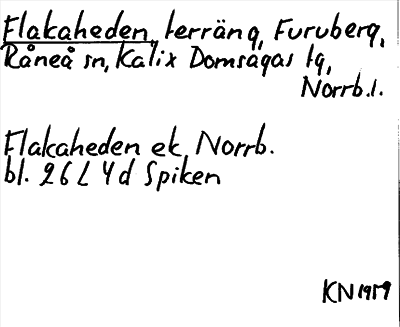 Flakaheden, terräng, Furuberg,
Råneå sn, Kalix Domsagas tg,
Norrb.l.
Flakaheden ek Norrb.
bl. 26 L 4d Spiken
KN 1979